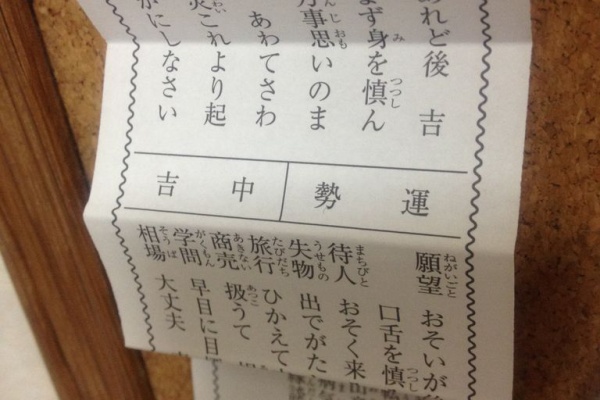 れど後 吉
まず身を慎ん
事思いのま
あわてさわ
これより起
にしなさい
運勢
中吉
願望 おそいが
口舌を慎
待人 おそく来
失物 出でがた
旅行 ひかえて
商売 扱うて
学問 早目に目
相場 大丈夫